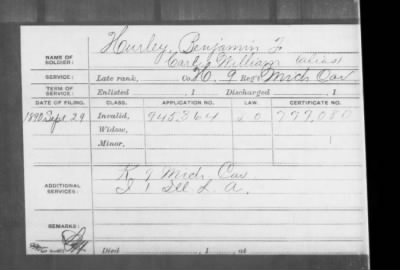 Hurley, Benjamin F
NAME OF SOLDIER: Carley William (alias)
SERVICE: Late rank, Co. K, 9 Reg't Mich Cav
TERM OF SERVICE: Enlisted , 1 Discharged , 1
DATE OF FILING. CLASS. APPLICATION NO. LAW. CERTIFICATE NO.
1890 Sept 29 Invalid, 945,364 797,080
Widow,
Minor, 1
K 9 Mich Cav
ADDITIONAL SERVICES: I 1 Ill L. A.
REMARKS:
Died , 1 , at